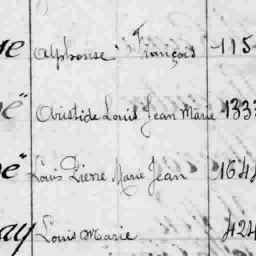 Alphonse François 115
Aristide Louis Jean Marie 1333
Louis Pierre Marie Jean 164
Louis Marie 424